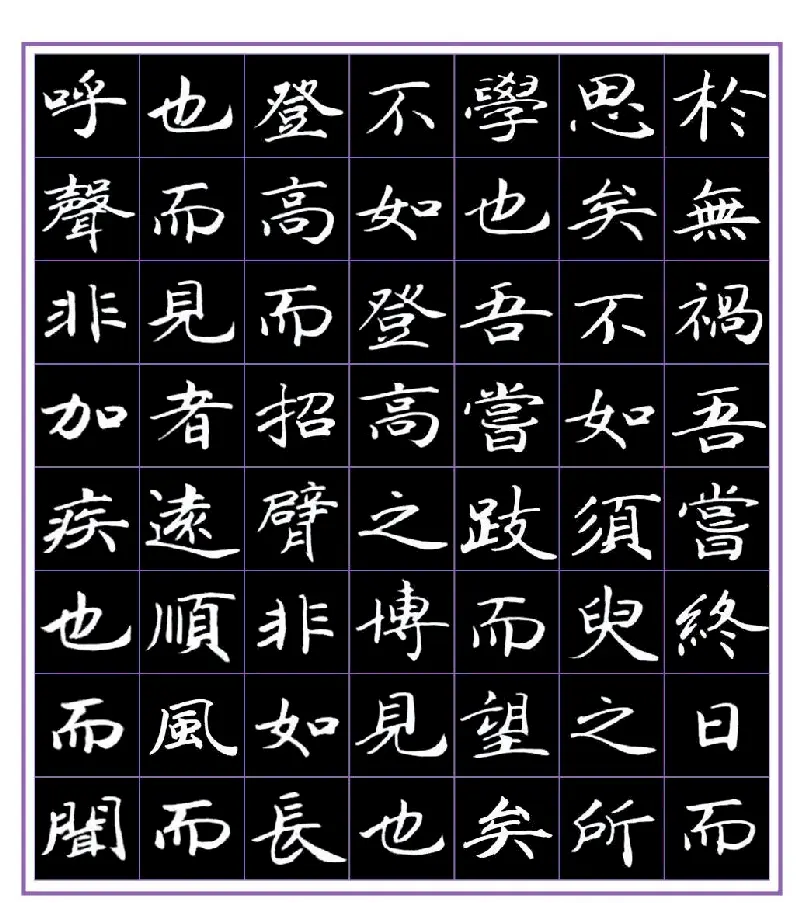 於無禍吾嘗終日而
思矣不如須臾之所
學也吾嘗跂而望矣
不如登高之博見也
登高而招臂非如長
也而見者遠順風而
呼聲非加疾也而聞